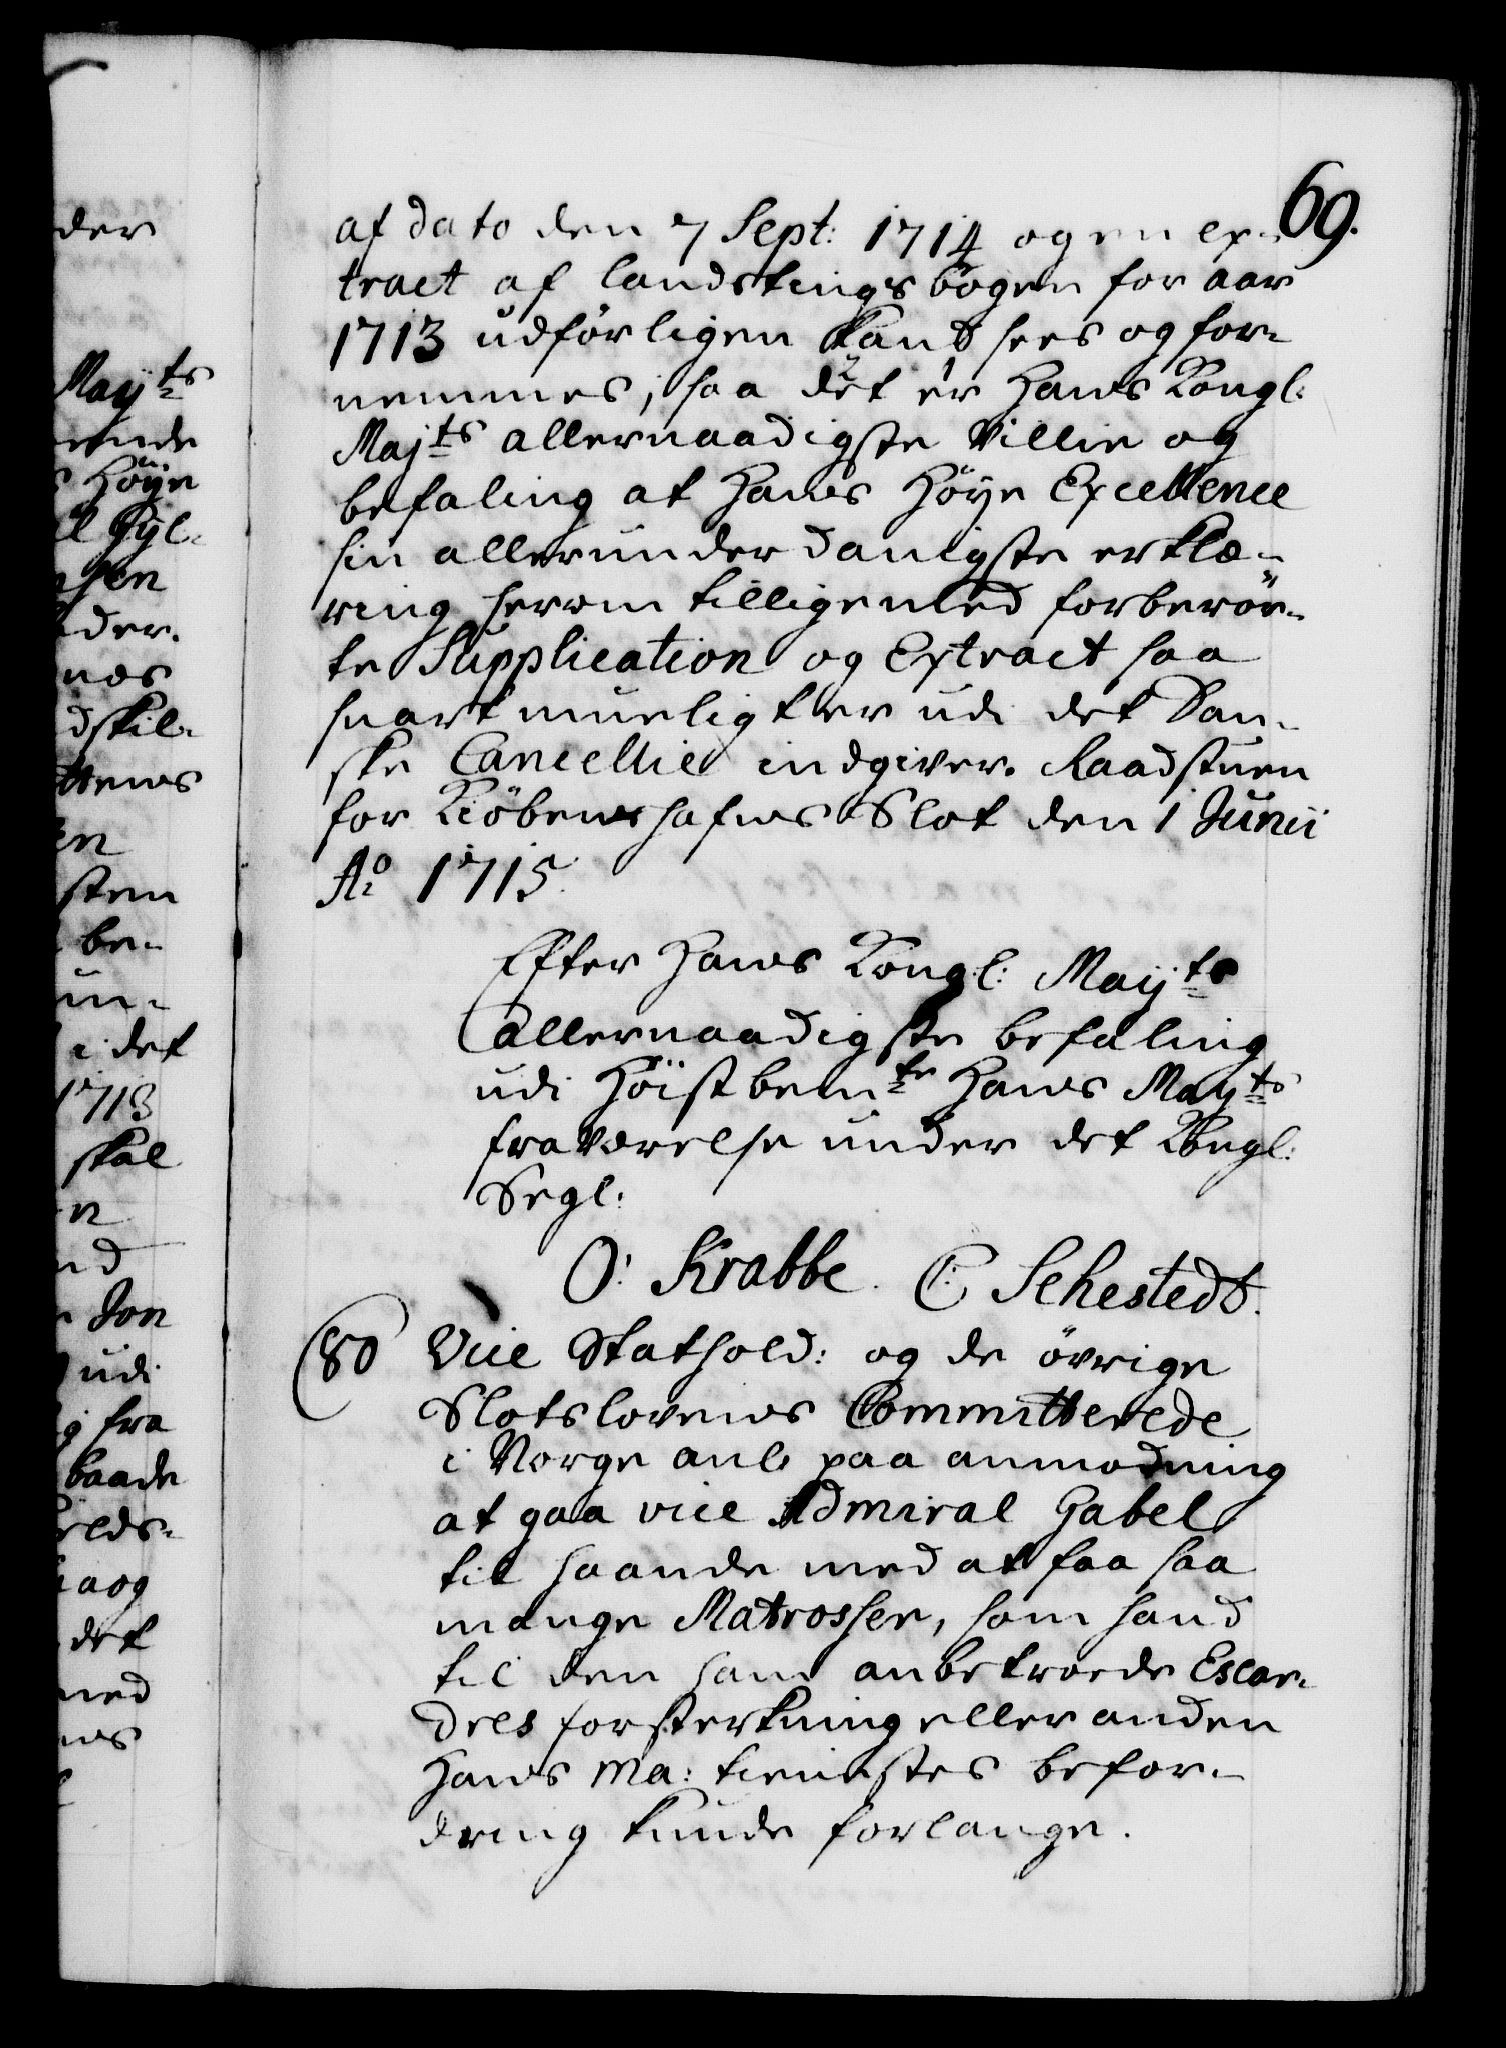 69.
af dato den 7 Sept: 1714 og en ex-
tract af landstings bogen for aar
1713 udførligen kand sees og for-
nemmes, saa det er Hans Kongl:
Majts allernaadigste Villie og
befaling at Hans Höye Excellence
sin allerunderdanigste erklæ-
ring herom tilligemed forberör-
te Supplication og Extract saa
snart mueligt er udi det Dan-
ske Cancellie indgiver. Raadstuen
for Kiöbenhafns Slot den 1 Junii
Ao 1715.
Efter Hans Kongl: Mayts
allernaadigste befaling
udi Höistbemte Hans Mayts
fraværelse under det Kongl:
Segl:
O: Krabbe. C: Sehestedt.
80 Vice Stathold: og de övrige
Slotslovens Committerede
i Norge anl: paa anmodning
at gaa vice Admiral Gabel
til haande med at faa saa
mange Matrosser, som hand
til den ham anbetroede Escar-
dres forsterkning eller anden
Hans Ma: tienistes befor-
dring kunde forlange.
der
Mayts
Höye
Gyl-
der.
dskil-
sten
be-
un-
i det
1713
skal
Jon
udi
fra
baade
det